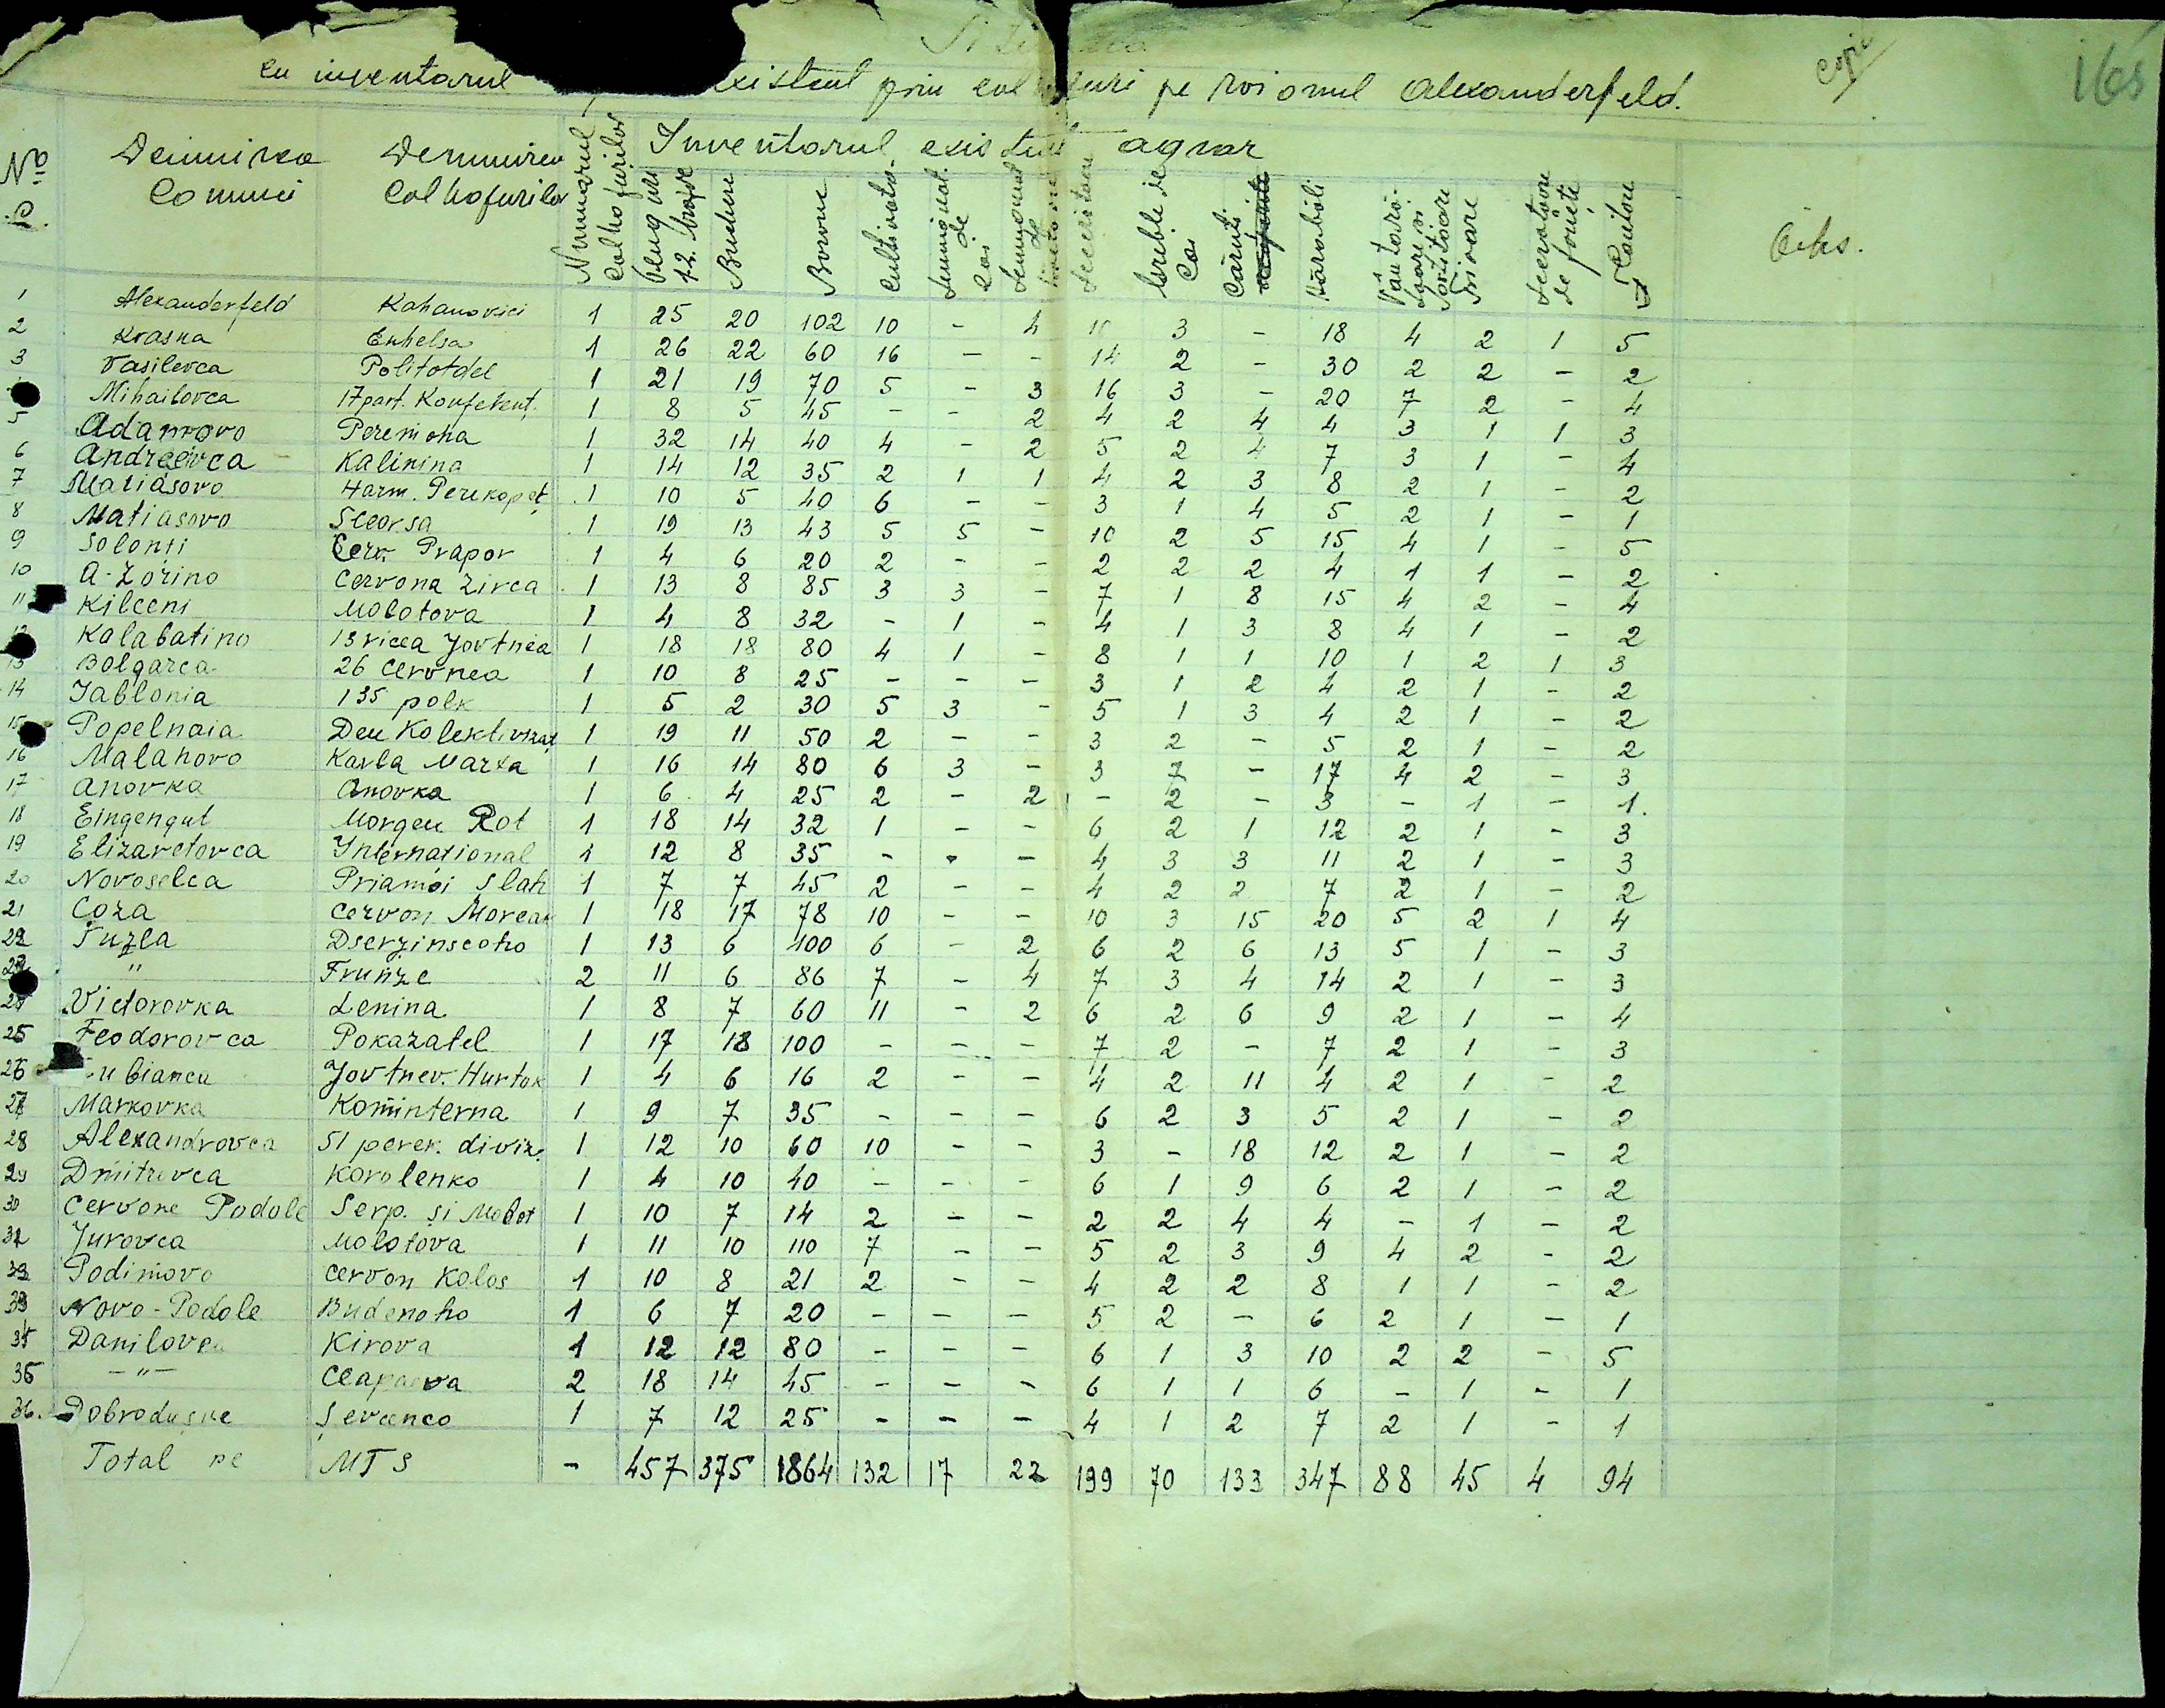 copie
165
cu inventarul existent prin colhozuri pe raionul Alexanderfeld.
No
Inventarul existent agrar
Denumirea Comunei Denumirea Colhozurilor Nummarul colhozurilor Pluguri 1-2 brazde Buchere Borone Cultivato. Semănat. de cai Semănat. de tractoare Secerătoare Greble de cai Căruți Hărabăli Vânturătoare Secerătoare de Obs.
1 Alexanderfeld Kahanovici 1 25 20 102 10 - 4 10 3 - 18 4 2 1 5
2 Krasna Enhelsa 1 26 22 60 16 - - 14 2 - 30 2 2 - 2
3 Vasilevca Politotdel 1 21 19 70 5 - 3 16 3 - 20 7 2 - 4
Mihailovca 17 part. Konferent. 1 8 5 45 - - 2 4 2 4 4 3 1 1 3
5 Adamovo Peremoha 1 32 14 40 4 - 2 5 2 4 7 3 1 - 4
6 Andreevca Kalinina 1 14 12 35 2 1 1 4 2 3 8 2 1 - 2
7 Matiasovo Harm. Perekopat 1 10 5 40 6 - - 3 1 4 5 2 1 - 1
8 Matiasovo Sceorsa 1 19 13 43 5 5 - 10 2 5 15 4 1 - 5
9 Solonti Cerv. Prapor 1 4 6 20 2 - - 2 2 2 4 1 1 - 2
10 A-Zorino Cervona Zirca 1 13 8 85 3 3 - 7 1 8 15 4 2 - 4
11 Kilceni Molotova 1 4 8 32 - 1 - 4 1 3 8 4 1 - 2
12 Kalabatino 13 ricea Jovtnea 1 18 18 80 4 1 - 8 1 1 10 1 2 1 3
13 Bolgarca 26 Cervnea 1 10 8 25 - - - 3 1 2 4 2 1 - 2
14 Jablonia 135 polk 1 5 2 30 5 3 - 5 1 3 4 2 1 - 2
15 Popelnaia Den Kolektivizaț 1 19 11 50 2 - - 3 2 - 5 2 1 - 2
16 Malahovo Karla Marxa 1 16 14 80 6 3 - 3 7 - 17 4 2 - 3
17 Anovka Anovka 1 6 4 25 2 - 2 - 2 - 3 - 1 - 1.
18 Eingengut Morgen Rot 1 18 14 32 1 - - 6 2 1 12 2 1 - 3
19 Elizavetovca International 1 12 8 35 - - - 4 3 3 11 2 1 - 3
20 Novoselca Priamoi Șlah 1 7 7 45 2 - - 4 2 2 7 2 1 - 2
21 Coza Cervon Moreak 1 18 17 78 10 - - 10 3 15 20 5 2 1 4
22 Tuzla Dserzinscoho 1 13 6 100 6 - 2 6 2 6 13 5 1 - 3
23 " Frunze 2 11 6 86 7 - 4 7 3 4 14 2 1 - 3
24 Victorovka Lenina 1 8 7 60 11 - 2 6 2 6 9 2 1 - 4
25 Feodorovca Pokazatel 1 17 18 100 - - - 7 2 - 7 2 1 - 3
26 Jovtnev. Hurtok 1 4 6 16 2 - - 4 2 11 4 2 1 - 2
27 Markovka Kominterna 1 9 7 35 - - - 6 2 3 5 2 1 - 2
28 Alexandrovca 51 perek. diviz. 1 12 10 60 10 - - 3 - 18 12 2 1 - 2
29 Dmitrevca Korolenko 1 4 10 40 - - - 6 1 9 6 2 1 - 2
30 Cervone Podole Serp. și Molot 1 10 7 14 2 - - 2 2 4 4 - 1 - 2
31 Jurovca Molotova 1 11 10 110 7 - - 5 2 3 9 4 2 - 2
32 Podimovo Cervon Kolos 1 10 8 21 2 - - 4 2 2 8 1 1 - 2
33 Novo-Podole Budenoho 1 6 7 20 - - - 5 2 - 6 2 1 - 1
34 Danilovca Kirova 1 12 12 80 - - - 6 1 3 10 2 2 - 5
35 -"- Ceapaeva 2 18 14 45 - - - 6 1 1 6 - 1 - 1
36. Dobrodușne Șevcenco 1 7 12 25 - - - 4 1 2 7 2 1 - 1
Total pe MTS - 457 375 1864 132 17 22 199 70 133 347 88 45 4 94